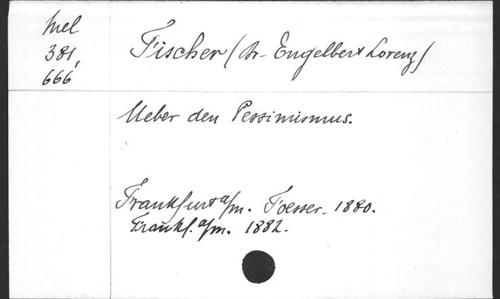 Mel
381,
666
Fischer (Dr. Engelbert Lorenz)
Ueber den Pessimismus.
Frankfurt a/m. Foesser. 1880.
Frankf. a/m. 1882.